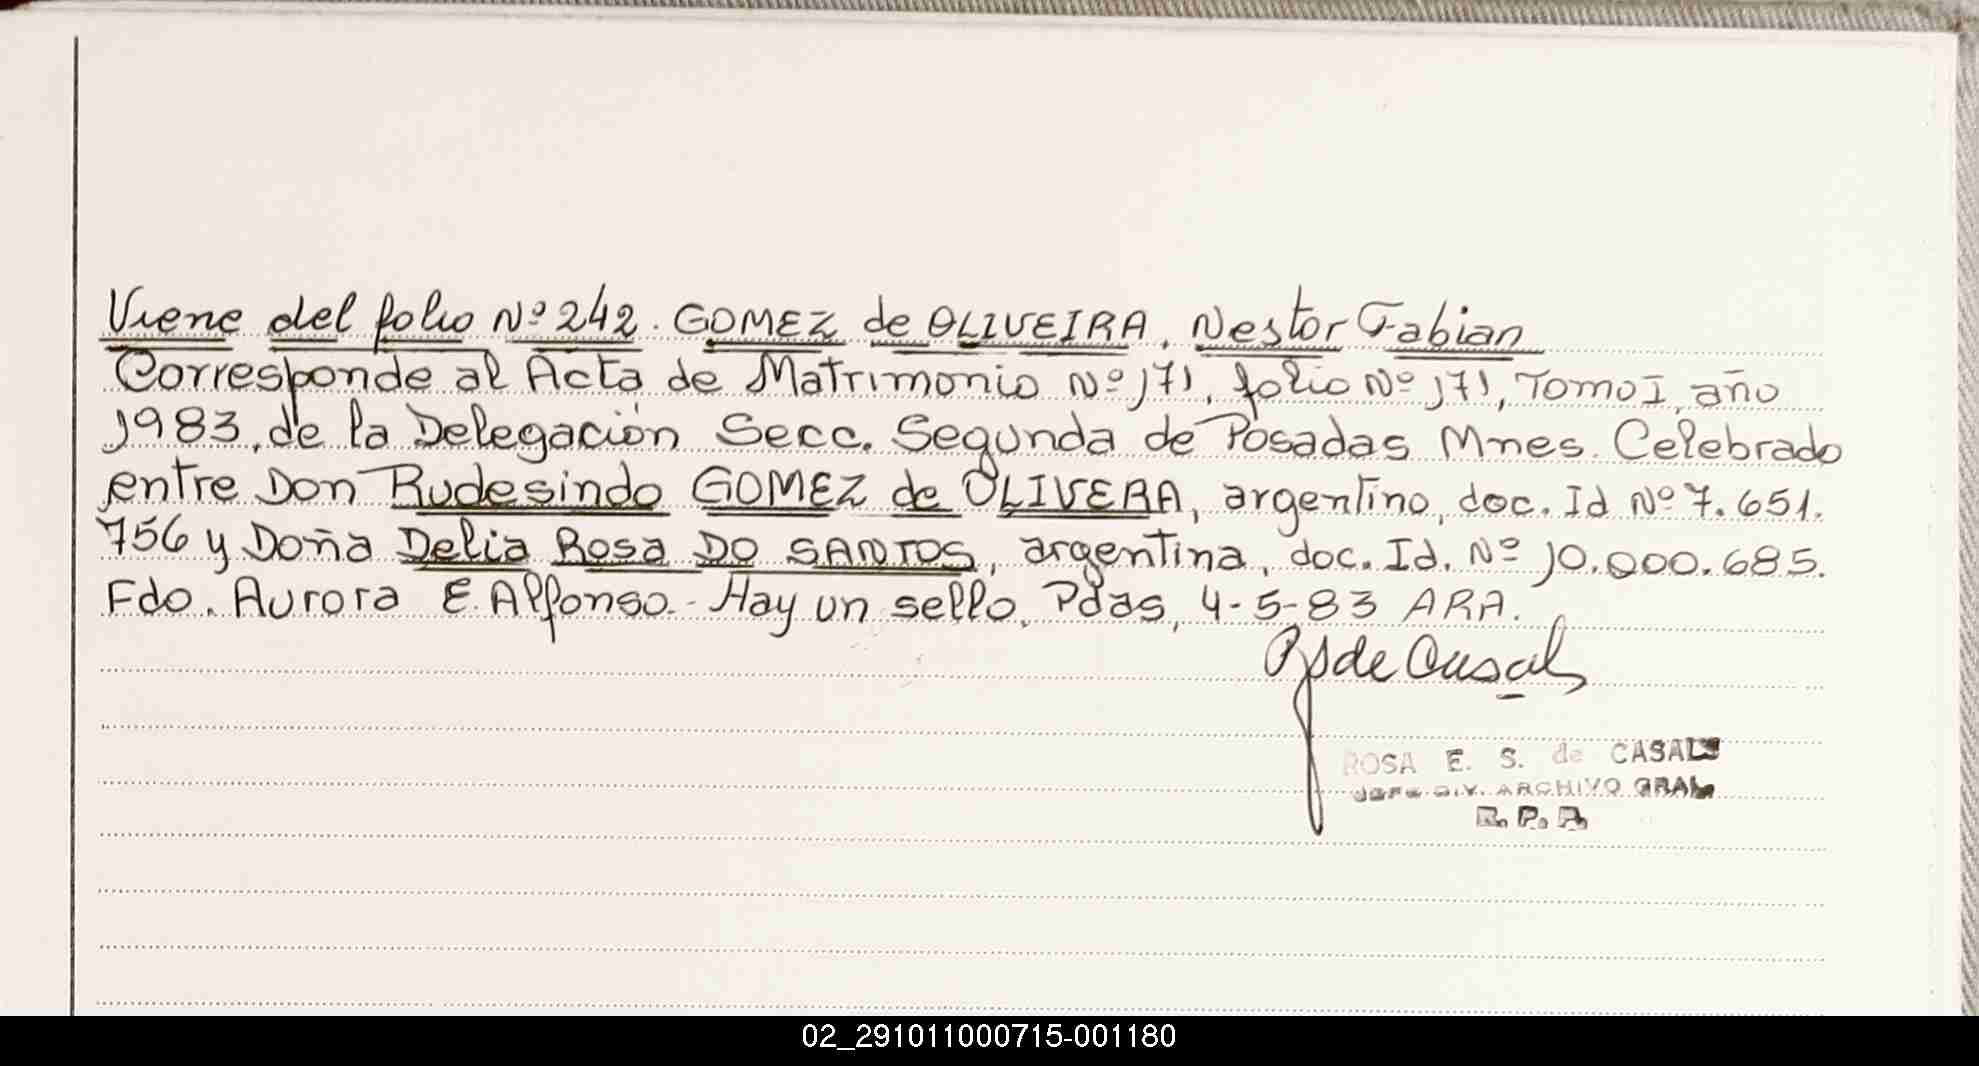 Viene del folio Nº 242. GOMEZ de OLIVEIRA, Nestor Fabian
Corresponde al Acta de Matrimonio Nº 171, folio Nº 171, Tomo I, año
1983, de la Delegación Secc. Segunda de Posadas Mnes. Celebrado
entre Don Rudesindo GOMEZ de OLIVERA, argentino, doc. Id Nº 7.651.
756 y Doña Delia Rosa DO SANTOS, argentina, doc. Id. Nº 10.000.685.
Fdo. Aurora E. Alfonso.- Hay un sello. Pdas, 4-5-83 ARA.
RSde Casals
ROSA E. S. de CASALS
JEFE DIV. ARCHIVO GRAL.
R. P. P.
02_291011000715-001180